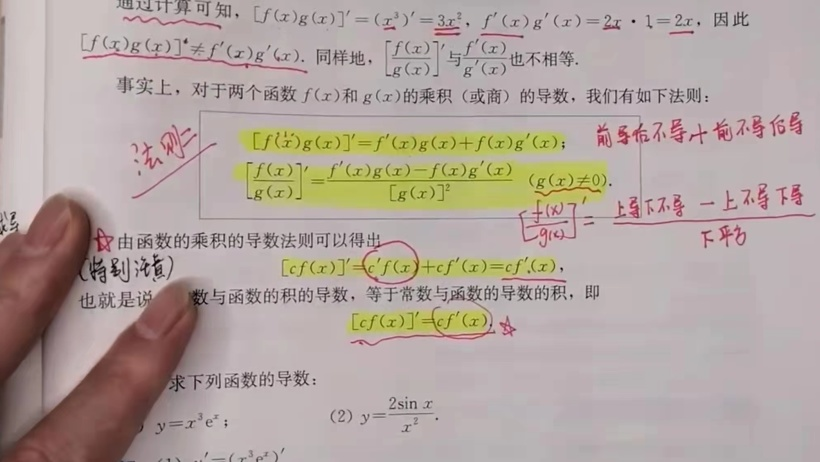 通过计算可知，[f(x)g(x)]′=(x³)′=3x²，f′(x)g′(x)=2x·1=2x，因此
[f(x)g(x)]′≠f′(x)g′(x). 同样地，[f(x)/g(x)]′与f′(x)/g′(x)也不相等.
事实上，对于两个函数 f(x)和 g(x)的乘积（或商）的导数，我们有如下法则：
法则二
[f(x)g(x)]′=f′(x)g(x)+f(x)g′(x)；
前导后不导+前不导后导
[f(x)/g(x)]′=(f′(x)g(x)-f(x)g′(x))/[g(x)]² (g(x)≠0).
[f(x)/g(x)]′=(上导下不导-上不导下导)/下平方
☆由函数的乘积的导数法则可以得出
(特别注意)
[cf(x)]′=c′f(x)+cf′(x)=cf′(x)，
也就是说 数与函数的积的导数，等于常数与函数的导数的积，即
[cf(x)]′=cf′(x). ☆
求下列函数的导数：
y=x³eˣ；
(2) y=2sin x/x².
(1) y′=(x³eˣ)′